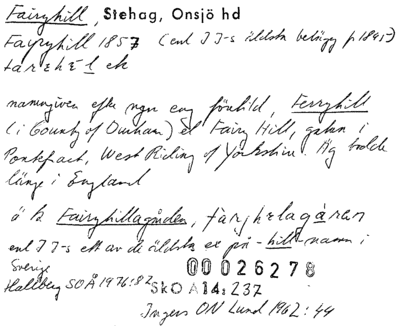 Fairyhill, Stehag, Onsjö hd
Fairyhill 1857 (enl IJ-s äldsta belägg p 1895)
namngiven efter ngn eng förebild, Ferryhill
(i County of Durham) el Fairy Hill, gatan i
Pontefract, West Riding of Yorkshire. Äg bodde
länge i England
ä k Fairyhillagården,
enl IJ-s ett av de äldsta ex på -hill-namn i
Sverige
00026278
Hallberg SOÅ 1976:82
SkO A14:237
Ingers ON Lund 1962:44